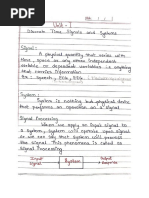 Unit - 1
Discrete Time Signals and Systems
Signal :
A physical quantity that varies with
time, space or any other independent
variable or dependent variables i.e. anything
that carries information
Ex : Speech, ECG, EEG
System :
System is nothing but physical device
that performs an operation on a signal
Signal Processing
When we apply an input signal to
a system, system will operate upon signal
or we can say that system will change
the signal. This phenomena is called as
signal Processing
Input
signal
System
Output